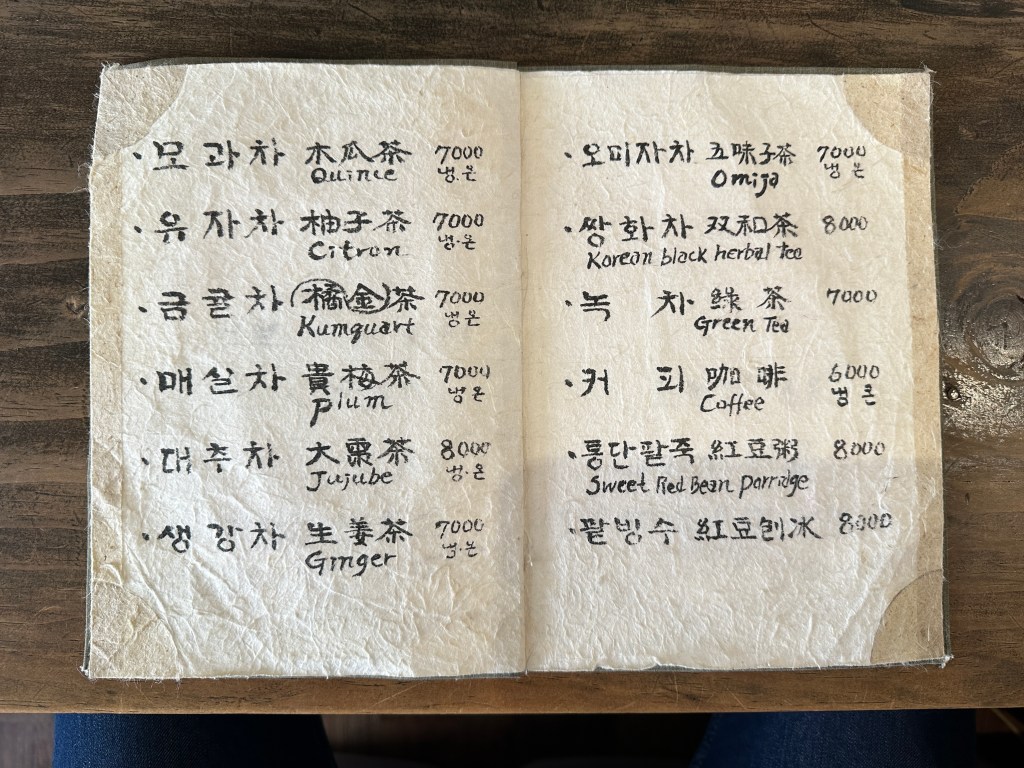 · 모과차 木瓜茶 7000
Quince 냉·온
· 유자차 柚子茶 7000
Citron 냉·온
· 금귤차 (橘金)茶 7000
Kumguart 냉·온
· 매실차 貴梅茶 7000
plum 냉·온
· 대추차 大棗茶 8000
Jujube 냉·온
· 생강차 生姜茶 7000
Ginger 냉·온
· 오미자차 五味子茶 7000
Omija 냉·온
· 쌍화차 双和茶 8000
Korean black herbal Tea
· 녹차 綠茶 7000
Green Tea
· 커피 咖啡 6000
Coffee 냉 온
· 통단팥죽 紅豆粥 8000
Sweet Red Bean Parridge
· 팥빙수 紅豆刨冰 8000